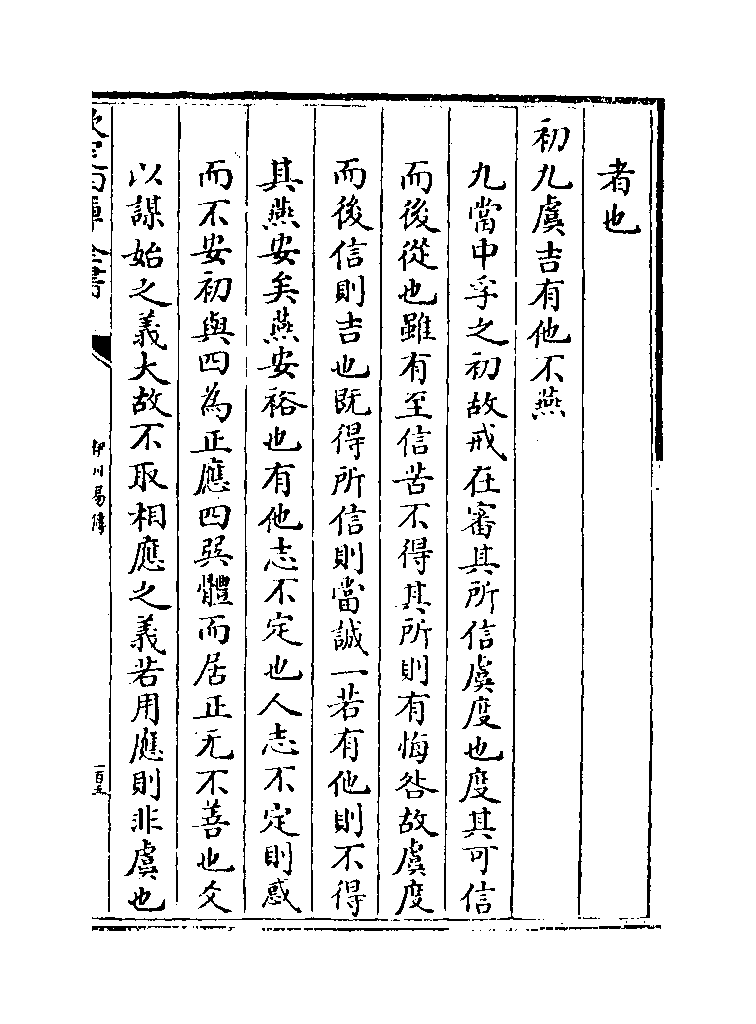 者也
初九虞吉有他不燕
九當中孚之初故戒在審其所信虞度也度其可信
而後從也雖有至信若不得其所則有悔咎故虞度
而後信則吉也既得所信則當誠一若有他則不得
其燕安矣燕安裕也有他志不定也人志不定則惑
而不安初與四為正應四巽體而居正无不善也爻
以謀始之義大故不取相應之義若用應則非虞也
欽定四庫全書
伊川易傳